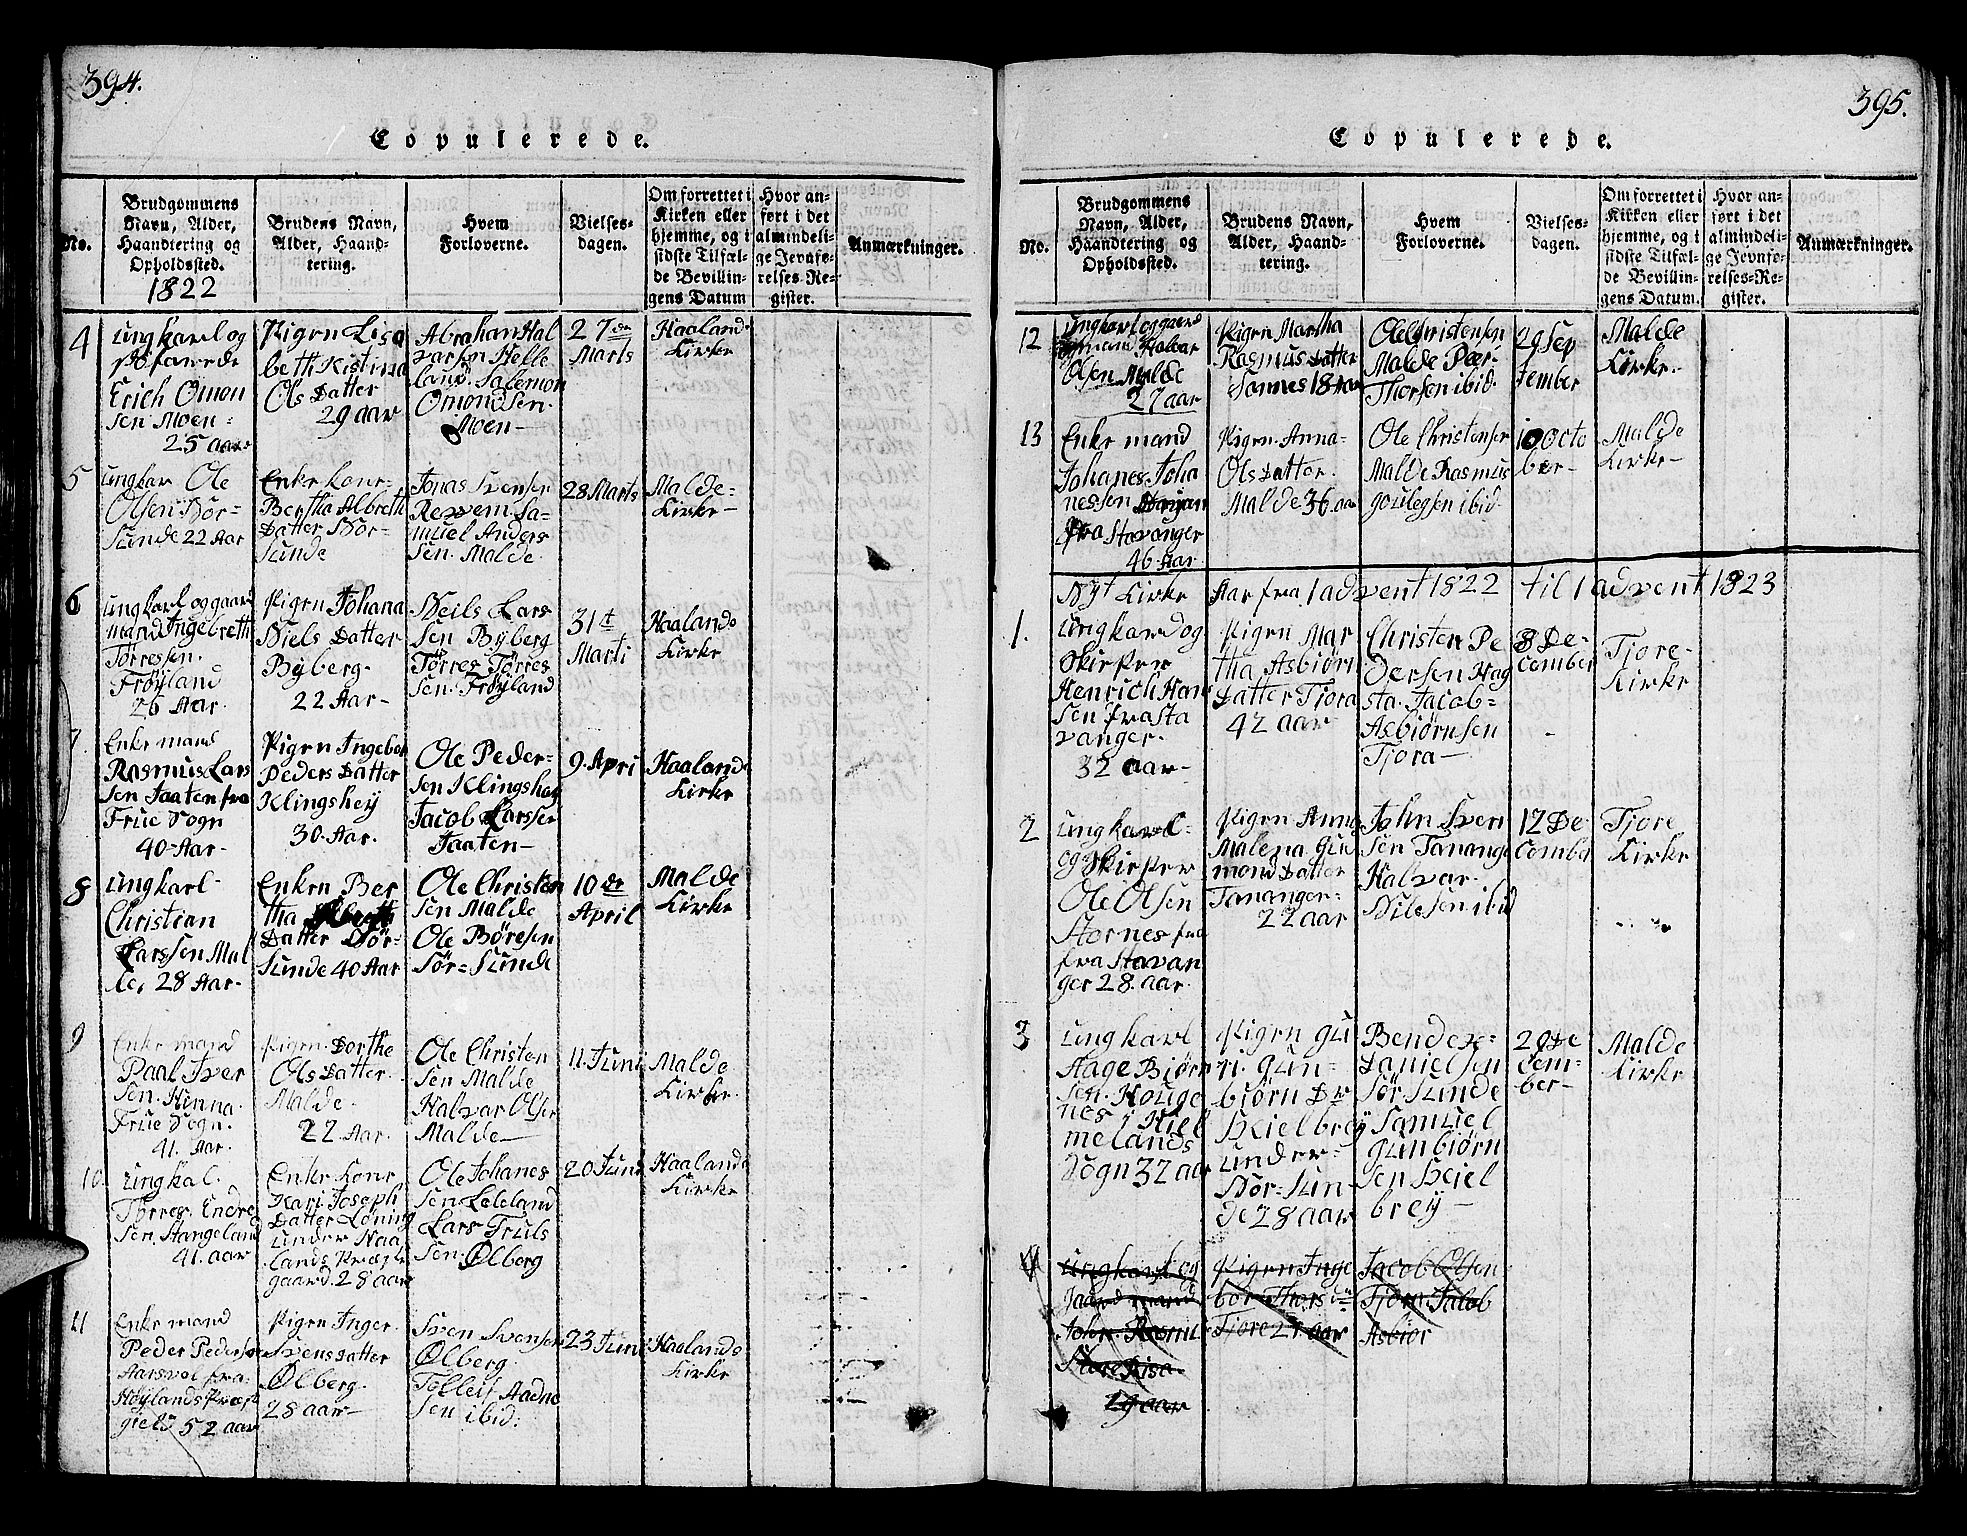 394.
Copulerede.
No.
Brudgommens
Navn, Alder,
Haandtering og
Opholdssted.
1822
Brudens Navn,
Alder, Haand-
tering.
Hvem
Forloverne.
Vielses-
dagen.
Om forrettet i
Kirken eller
hjemme, og i
sidste Tilfæl-
de Bevillin-
gens Datum
Hvor an-
ført i det
almindeli-
ge Jevnfø-
relses-Re-
gister.
Anmærkninger.
4
ungkarl og
søfarede
Erich Omon
sen Moen-
25 aar
Pigen Lisa
beth Kistina
Ols Datter
29 aar
Abraham Hal
varsen Helle
land. Salemon
Omondsen.
Moen-
27de
Marts
Haalands
Kirke
5
ungkar Ole
Olsen Sør-
Sunde 22 Aar
Enke kone-
Bertha Albreth
Datter Sør-
Sunde
Jonas Svensen
Revem Sa-
muel Anders
sen. Malde.
28 Marts
Malde-
Kirke-
6
ungkarl og gaard
mand Ingebreth
Tørresen.
Frøyland
26 Aar.
Pigen Johana
Niels Datter
Byberg.
22 Aar-
Neils Lars
sen Byberg
Tørres Tørres
sen. Frøyland
31t
Marti
Haalands
Kirke
7
Enke mand
Rasmus Lars
sen Taaten fra
Frue Sogn
40-Aar-
Pigen Ingebor
Peders Datter
Klingshey
30-Aar.
Ole Peder-
sen Klingshey
Jacob Larssen
Taaten-
9. Apri
Haalands
Kirke
8
ungkarl-
Christian
Larssen Mal
de, 28 Aar-
Enken Ber
tha Albreth
Datter Sør-
Sunde 40 Aar
Ole Christen
sen Malde
Ole Børesen
Sør-Sunde
10de
April
Malde
Kirke
9
Enke mand
Paal Iver
sen. Hinna.
Frue Sogn.
41. Aar.
Pigen. Dorthe
Ols Datter.
Malde.
22. Aar.
Ole Christen
sen Malde
Halvar Olsen
Malde-
11. Juni
Malde
Kirke
10.
ungkal.
Tørres. Endre
sen. Stangeland
41. aar
Enke Kone
Kari Joseph
Datter Løning
under Haa
lands Præste
gaard. 28 aar
Ole Johanes
sen Leleland
Lars Truls
sen. Ølberg
20 Juni
Haalands
Kirke
11
Enke mand
Peder Pedersen
Aarsvol fra-
Høylands Præst
gield 52 aar
Pigen Inger.
Svensdatter
Ølberg.
28 aar-
Sven Svensen
Ølberg.
Tolleif Aadne
sen ibid:
23 Juni
Haalands
Kirke
395.
Copulerede.
No.
Brudgommens
Navn, Alder,
Haandtering og
Opholdssted.
Brudens Navn,
Alder, Haand-
tering.
Hvem
Forloverne.
Vielses-
dagen.
Om forrettet i
Kirken eller
hjemme, og i
sidste Tilfæl-
de Bevillin-
gens Datum.
Hvor an-
ført i det
almindeli-
ge Jevnfø-
relses-Re-
gister.
Anmærkninger.
12
ungkarl og gaard
mand Halvar
Olsen Malde
27 aar
Pigen Martha
Rasmus Datter
Sannes 18 aar
Ole Cristensen
Malde Peer
Thorsen ibid.
29 Sep
tember
Malde
Kirke.
13
Enke mand
Johanes Joha
nessen
fra Stavanger
46 Aar
Pigen. Anna-
Ols Datter.
Malde 36 aar
Ole Christensen
Malde Rasmus
ibid.
10 Octo
ber-
Malde
Kirke-
Nyt Kirke Aar fra 1 advent 1822 til 1 advent 1823
1.
ungkard og
Skipper
Henrich Hans
sen fra Sta
vanger.
32 aar-
Pigen Mar
tha Asbiørn
Datter Tjora
42 aar
Christen Pe
dersen Hog
sta. Jacob-
Asbiørnsen
Tjora-
8 De-
cember
Tjore-
Kirke
2
ungkarl-
og Skipper
Ole Olsen
Stornes fra
fra Stavan
ger 28. aar.
Pigen Anna
Malena Gu
mond Datter
Tananger-
22 aar
John Sven
sen Tanange
Halvar.
Nilssen ibid
12 De
cember
Tjore
Kirke
3
ungkarl
Aage Biørn
sen. Houge
nes j Hiel
melands
Sogn 32 aar
Pigen gu
ri. gun-
biørn Dr
Skielbrey
under-
Sør-Sun
de 28 aar
Bendex-
Danielsen
Sør Sunde
Samuel
gunbiørn
sen Skiel
brey-
29 De
cem-
ber-
Malde
Kirke
ungkarl og
gaard mand
John. Rasmu
Store Risa
29 aar
Pigen Inge
bor Thors D
Tjore 27 aar
Jacob Olsen
Tjora. Jacob
Asbiør